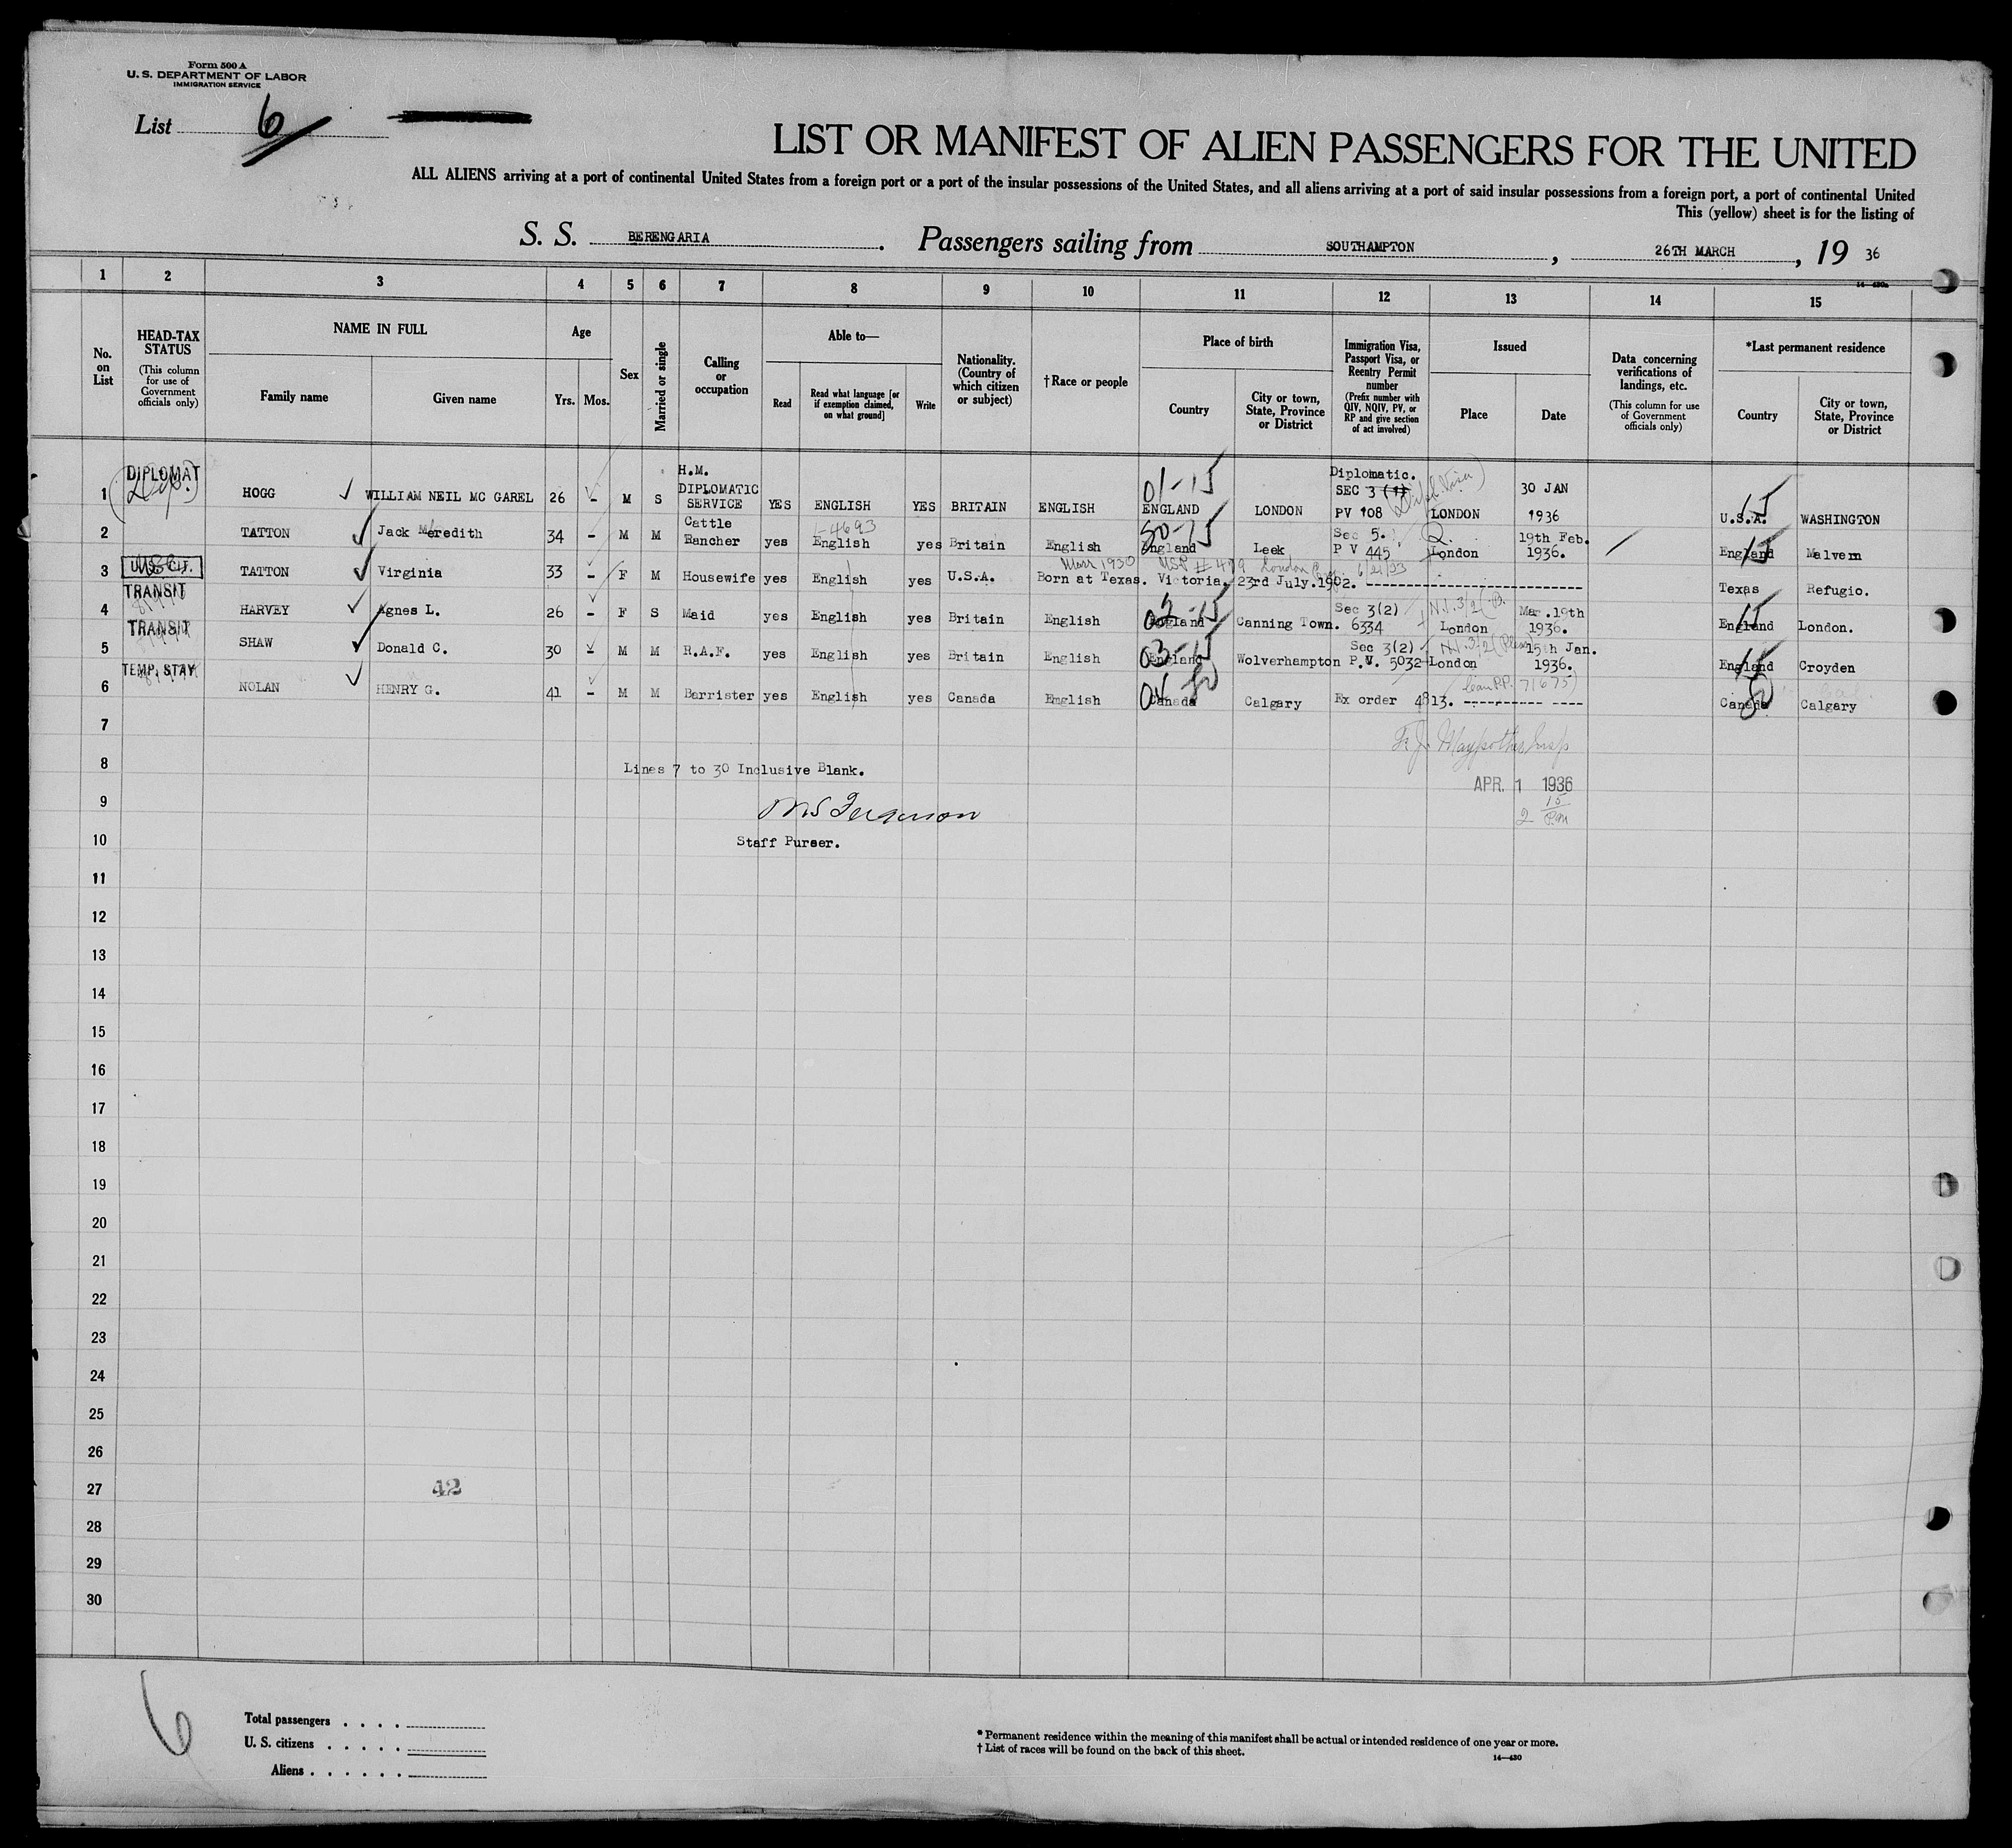 Form 500 A
U. S. DEPARTMENT OF LABOR
IMMIGRATION SERVICE
List 6
LIST OR MANIFEST OF ALIEN PASSENGERS FOR THE UNITED
ALL ALIENS arriving at a port of continental United States from a foreign port or a port of the insular possessions of the United States, and all aliens arriving at a port of said insular possessions from a foreign port, a port of continental United
This (yellow) sheet is for the listing of
S. S. BERENGARIA. Passengers sailing from SOUTHAMPTON, 26TH MARCH, 19 36
1 2 3 4 5 6 7 8 9 10 11 12 13 14 15
No. on List
HEAD-TAX STATUS
(This column for use of Government officials only)
NAME IN FULL
Family name
Given name
Age
Yrs. Mos.
Sex
Married or single
Calling or occupation
Able to—
Read
Read what language [or if exemption claimed, on what ground]
Write
Nationality. (Country of which citizen or subject)
†Race or people
Place of birth
Country
City or town, State, Province or District
Immigration Visa, Passport Visa, or Reentry Permit number
(Prefix number with QIV, NQIV, PV, or RP and give section of act involved)
Issued
Place
Date
Data concerning verifications of landings, etc.
(This column for use of Government officials only)
*Last permanent residence
Country
City or town, State, Province or District
1 DIPLOMAT HOGG WILLIAM NEIL MC GAREL 26 - M S H.M. DIPLOMATIC SERVICE YES ENGLISH YES BRITAIN ENGLISH 01-15 ENGLAND LONDON Diplomatic. SEC 3 (1) PV 108 LONDON 30 JAN 1936 15 U.S.A. WASHINGTON
2 TATTON Jack Meredith 34 - M M Cattle Rancher yes English yes Britain English 50-15 England Leek Sec 5. P V 445 Q. London 19th Feb. 1936. 15 England Malvern
3 U.S. CIT. TATTON Virginia 33 - F M Housewife yes English yes U.S.A. Born at Texas. Victoria. 23rd July.1902. Texas Refugio.
4 TRANSIT HARVEY Agnes L. 26 - F S Maid yes English yes Britain English 02-15 England Canning Town. Sec 3(2) 6334 London Mar.19th 1936. 15 England London.
5 TRANSIT SHAW Donald C. 30 - M M R.A.F. yes English yes Britain English 03-15 England Wolverhampton Sec 3(2) P.V. 5032 London 15th Jan. 1936. 15 England Croyden
6 TEMP. STAY NOLAN HENRY G. 41 - M M Barrister yes English yes Canada English 04 Canada Calgary Ex order 4813. Canada Calgary
7
8 Lines 7 to 30 Inclusive Blank.
APR. 1 1936
9
10 Staff Purser.
11
12
13
14
15
16
17
18
19
20
21
22
23
24
25
26
27 42
28
29
30
6
Total passengers
U. S. citizens
Aliens
* Permanent residence within the meaning of this manifest shall be actual or intended residence of one year or more.
† List of races will be found on the back of this sheet.
14—430